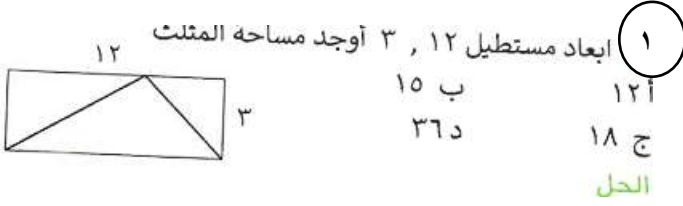 ١ ابعاد مستطيل ١٢ , ٣ أوجد مساحة المثلث
١٢
أ ١٢ ب ١٥
٣
ج ١٨ د ٣٦
الحل